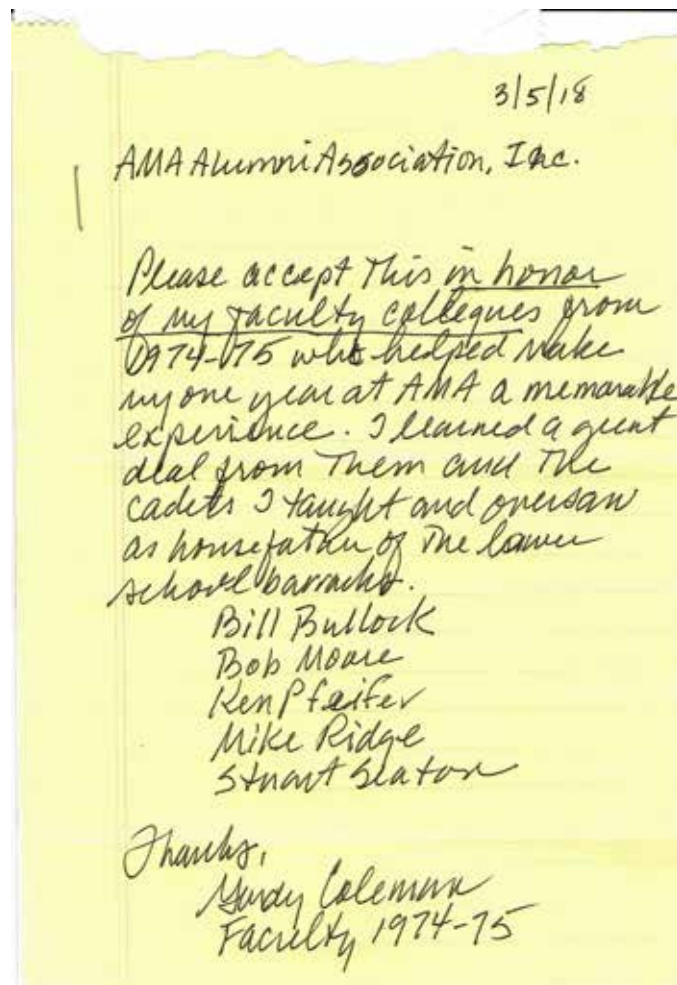 3/5/18
AMA Alumni Association, Inc.
Please accept this in honor
of my faculty collegues from
1974-75 who helped make
my one year at AMA a memorable
experience. I learned a great
deal from them and the
cadets I taught and oversaw
as housefather of the lower
school barracks.
Bill Bullock
Bob Moore
Ken Pfeifer
Mike Ridge
Stuart Seaton
Thanks,
Coleman
Faculty 1974-75